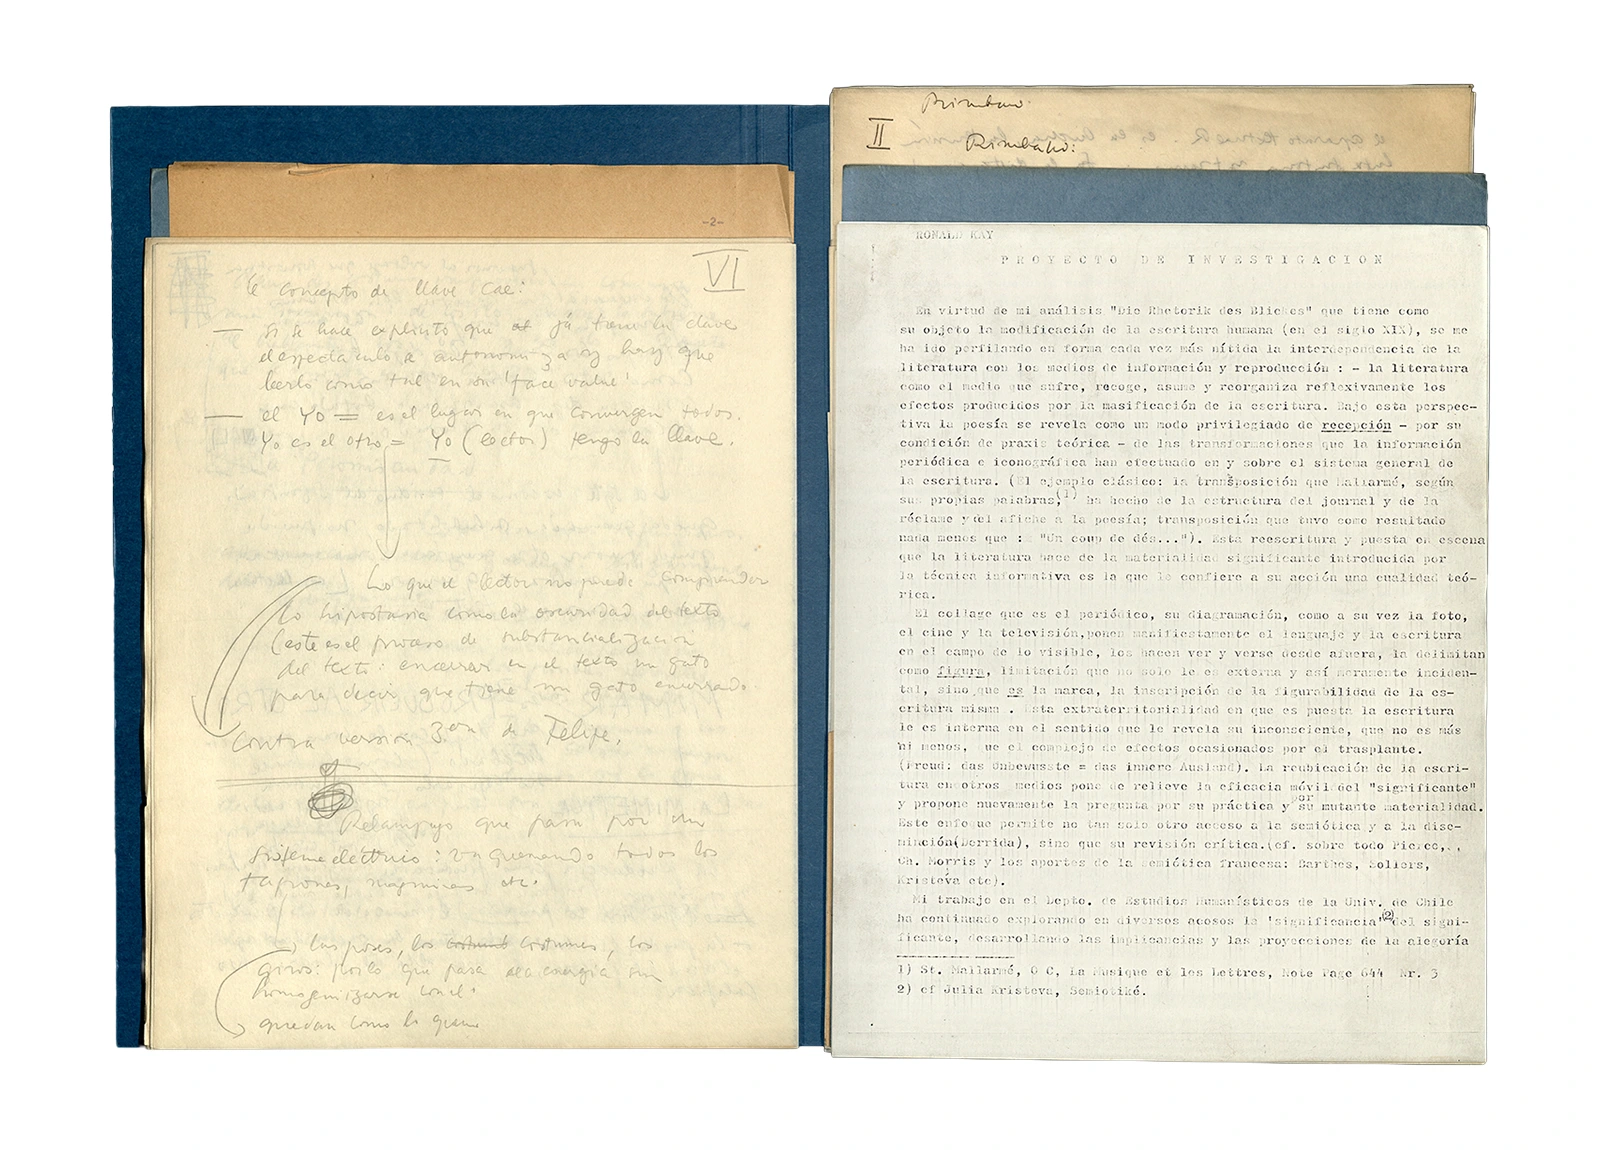 -2-
VI
El concepto de llave cae:
— si se hace explícito que ya tiene la clave
el espectáculo se autonomiza y hay que
leerlo como tal en su 'face value'
— el Yo = es el lugar en que convergen todos.
Yo es el otro = Yo (lector) tengo la llave.
Lo que el lector no puede comprender
lo hipostasia como la oscuridad del texto
(este es el proceso de substancialización
del texto: encerrar en el texto un gato
para decir que tiene un gato encerrado.
Contra versión 3era de Felipe.
Relampago que pasa por un
sistema eléctrico: va quemando todos los
tapones, maquinas etc.
las poses, los costumb costumes, los
giros: por lo que pasa la energía sin
homogenizarse con el.
quedan como lo quem
Rimbaud
II
Rimbaud:
RONALD KAY
PROYECTO DE INVESTIGACION
En virtud de mi análisis "Die Rhetorik des Blickes" que tiene como
su objeto la modificación de la escritura humana (en el siglo XIX), se me
ha ido perfilando en forma cada vez más nítida la interdependencia de la
literatura con los medios de información y reproducción : - la literatura
como el medio que sufre, recoge, asume y reorganiza reflexivamente los
efectos producidos por la masificación de la escritura. Bajo esta perspec-
tiva la poesía se revela como un modo privilegiado de recepción - por su
condición de praxis teórica - de las transformaciones que la información
periódica e iconográfica han efectuado en y sobre el sistema general de
la escritura. (El ejemplo clásico: la transposición que Mallarmé, según
sus propias palabras,(1) ha hecho de la estructura del journal y de la
réclame y del afiche a la poesía; transposición que tuvo como resultado
nada menos que : "Un coup de dés..."). Esta reescritura y puesta en escena
que la literatura hace de la materialidad significante introducida por
la técnica informativa es la que le confiere a su acción una cualidad teó-
rica.
El collage que es el periódico, su diagramación, como a su vez la foto,
el cine y la televisión,ponen manifiestamente el lenguaje y la escritura
en el campo de lo visible, los hacen ver y verse desde afuera, la delimitan
como figura, limitación que no solo le es externa y así meramente inciden-
tal, sino que es la marca, la inscripción de la figurabilidad de la es-
critura misma . Esta extraterritorialidad en que es puesta la escritura
le es interna en el sentido que le revela su inconsciente, que no es más
ni menos, ue el complejo de efectos ocasionados por el trasplante.
(Freud: das Unbewusste = das innere Ausland). La reubicación de la escri-
tura en otros medios pone de relieve la eficacia móvil del "significante"
y propone nuevamente la pregunta por su práctica y por su mutante materialidad.
Este enfoque permite no tan solo otro acceso a la semiótica y a la dise-
minación(Derrida), sino que su revisión crítica.(cf. sobre todo Pierce,.,
Ch. Morris y los aportes de la semiótica francesa: Barthes, Sollers,
Kristeva etc).
Mi trabajo en el Depto. de Estudios Humanísticos de la Univ. de Chile
ha continuado explorando en diversos acosos la 'significancia'(2)del signi-
ficante, desarrollando las implicancias y las proyecciones de la alegoría
1) St. Mallarmé, O C, La Musique et les Lettres, Note Page 644 Nr. 3
2) cf Julia Kristeva, Semiotiké.